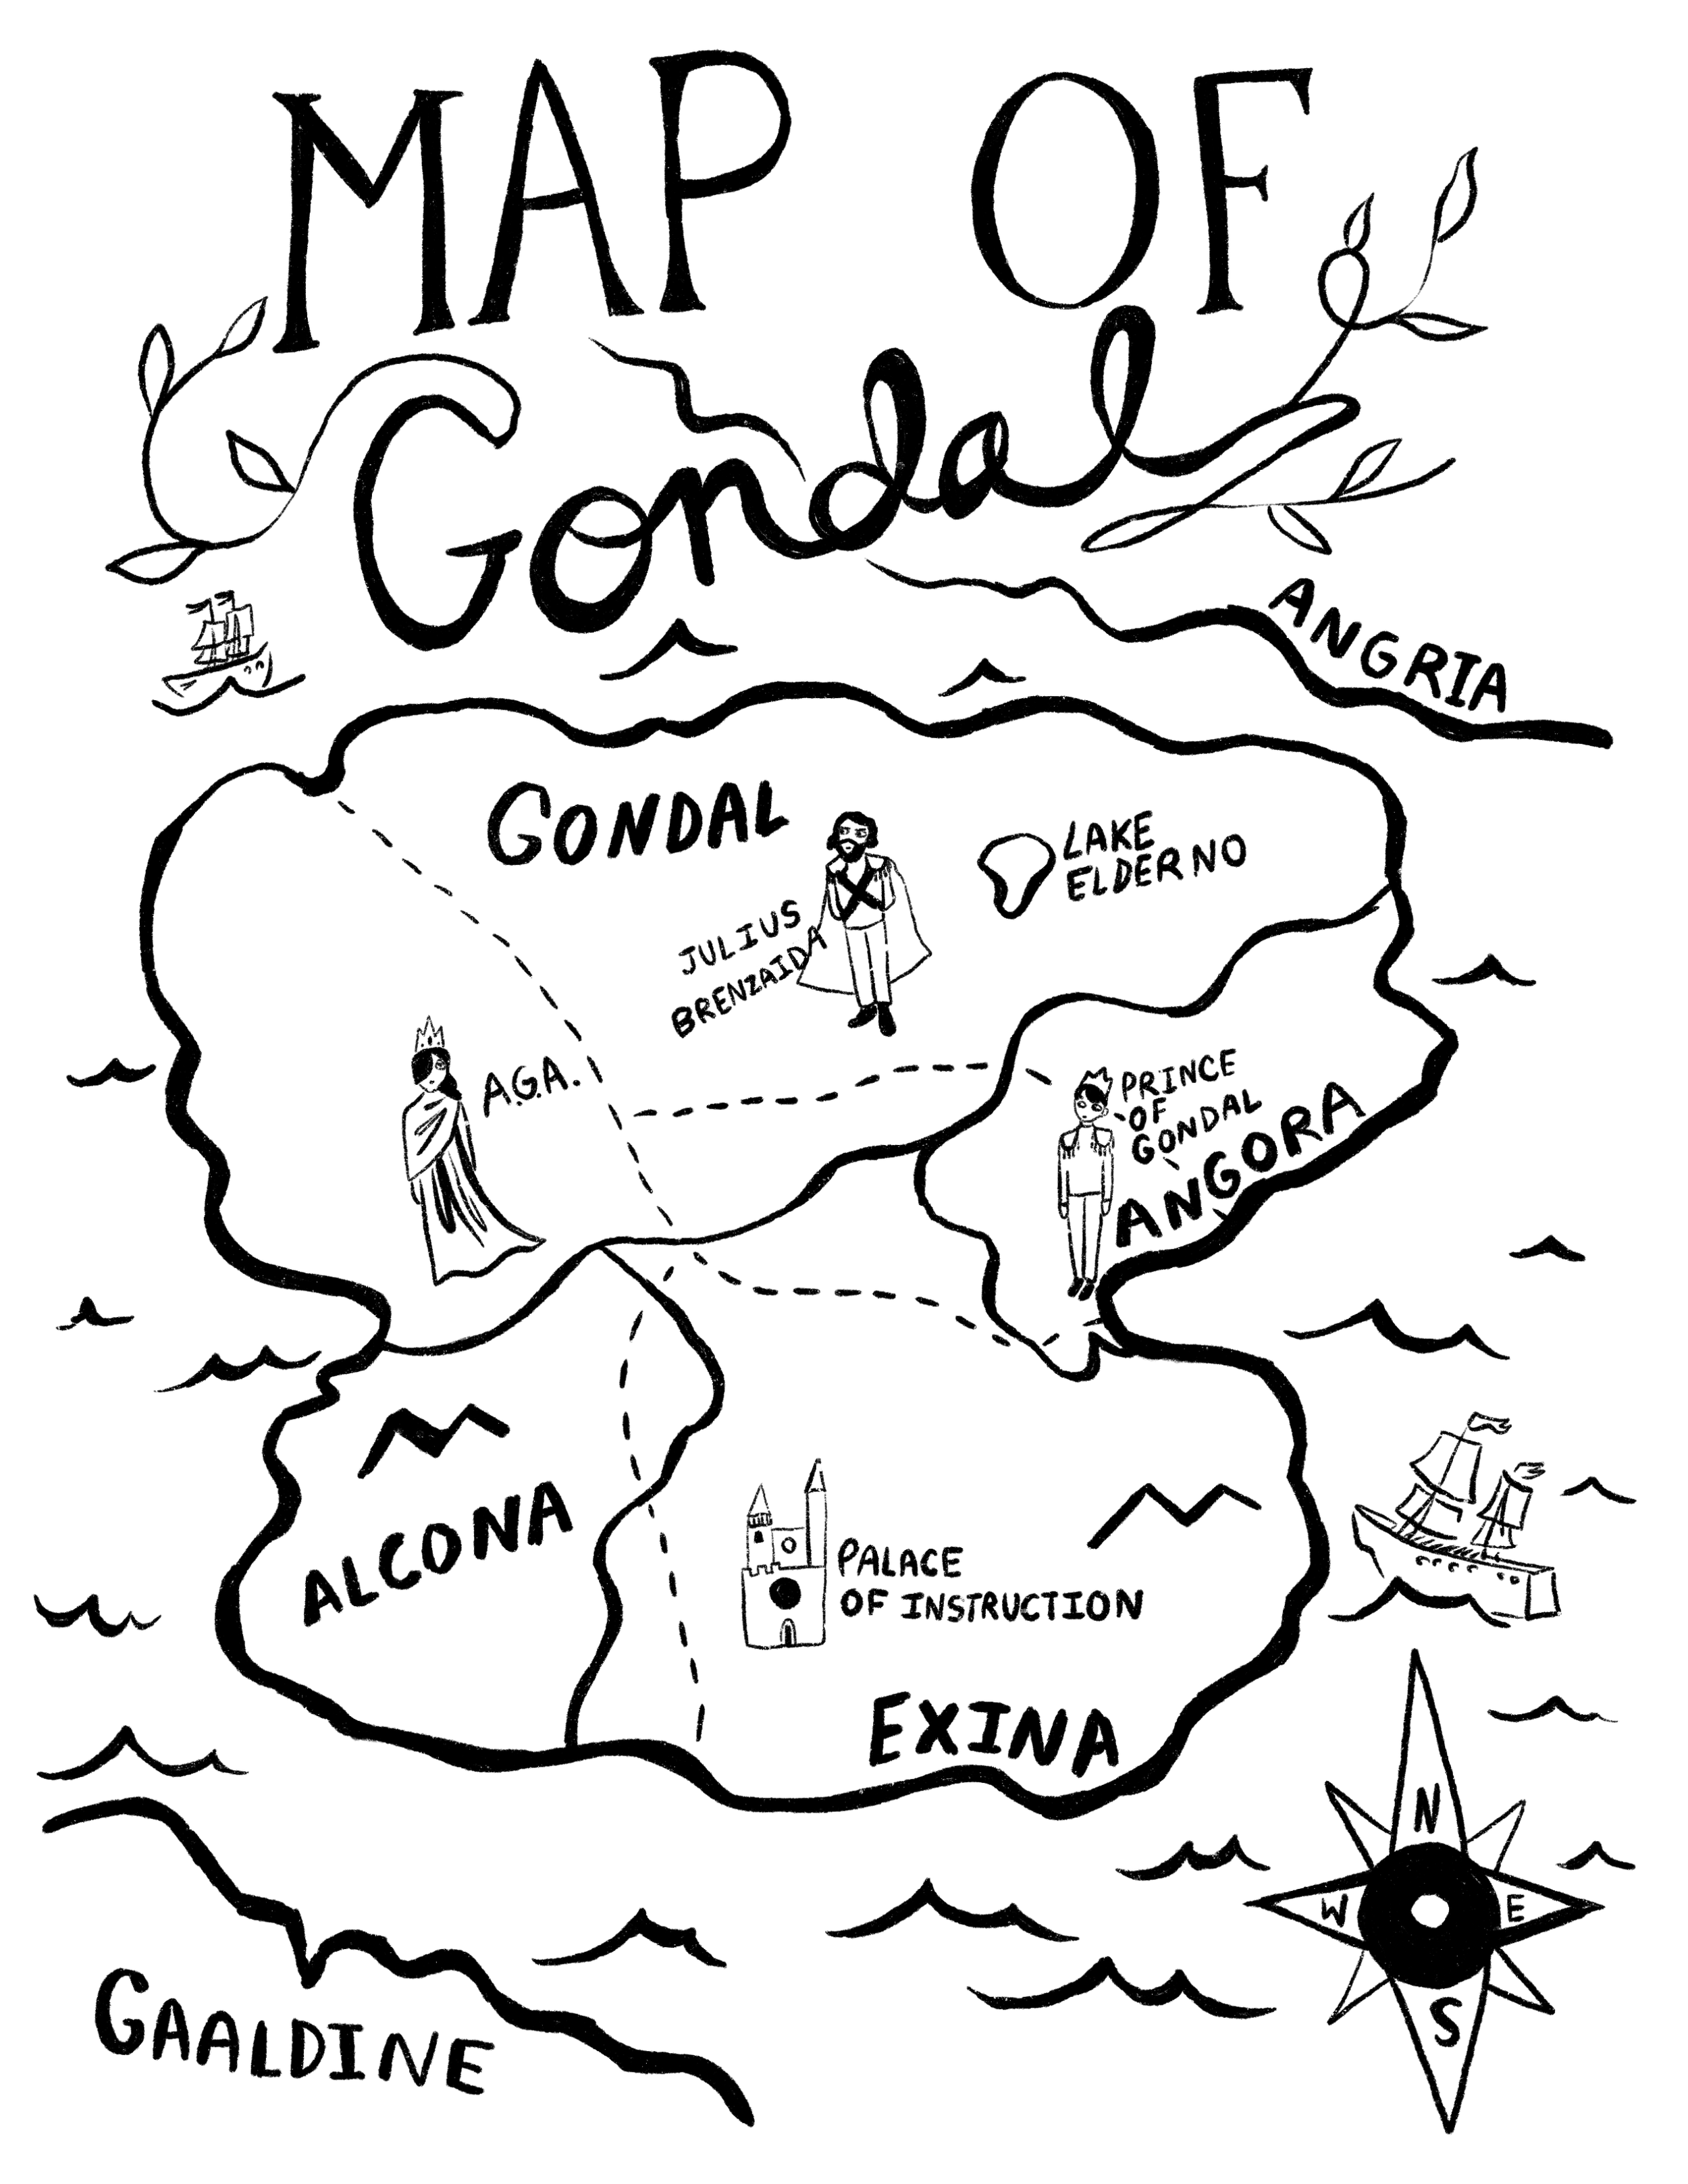 MAP OF
Gondal
ANGRIA
GONDAL
LAKE
ELDERNO
JULIUS
BRENZAIDA
A.G.A.
PRINCE
OF
GONDAL
ANGORA
ALCONA
PALACE
OF INSTRUCTION
EXINA
N
W
E
S
GAALDINE